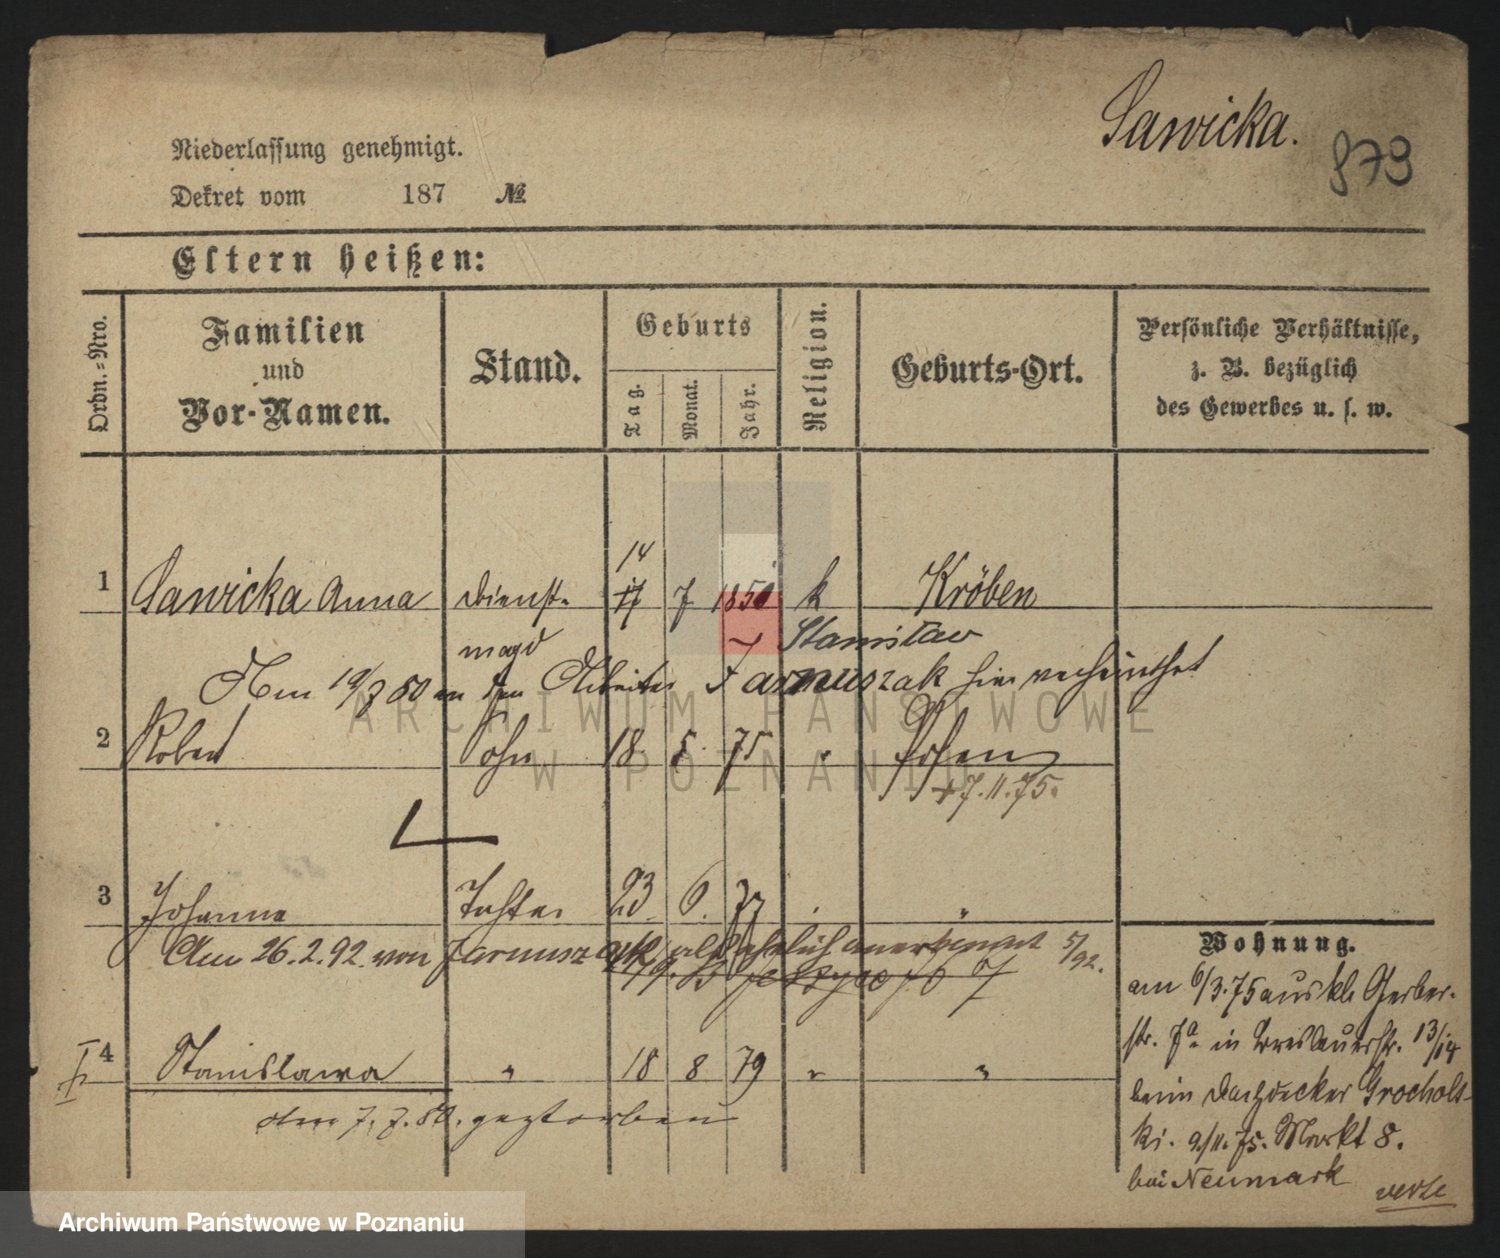 Sawicka.
873
Niederlassung genehmigt.
Dekret vom 187 №
Eltern heißen:
Ordn.=Nro.
Familien
und
Vor-Namen.
Stand.
Geburts
Tag.
Monat.
Jahr.
Religion.
Geburts-Ort.
Persönliche Verhältnisse,
z. B. bezüglich
des Gewerbes u. s. w.
14
1 Sawicka Anna Dienst- 17 7 1850 k Kröben
magd Stanislaw
Am 19/8 80 an den Arbeiter Jarnuszak hier verheirathet
2 Robert Sohn 18. 5. 75 " Posen
+7.11.75.
3 Johanna Tochter 23. 6. 77 "
Am 26.2.92. von Jarnuszak als ehelich anerkannt 5/92.
4 Stanislawa " 18 8 79 " "
den 7.7.80. gestorben
Wohnung.
am 6/3.75 aus kl. Gerber-
str. 7a in Breslauerstr. 13/14
beim Dachdecker Grochols-
ki. 9/11.75. Markt 8.
bei Neumark
verte
ARCHIWUM PAŃSTWOWE
W POZNANIU
Archiwum Państwowe w Poznaniu